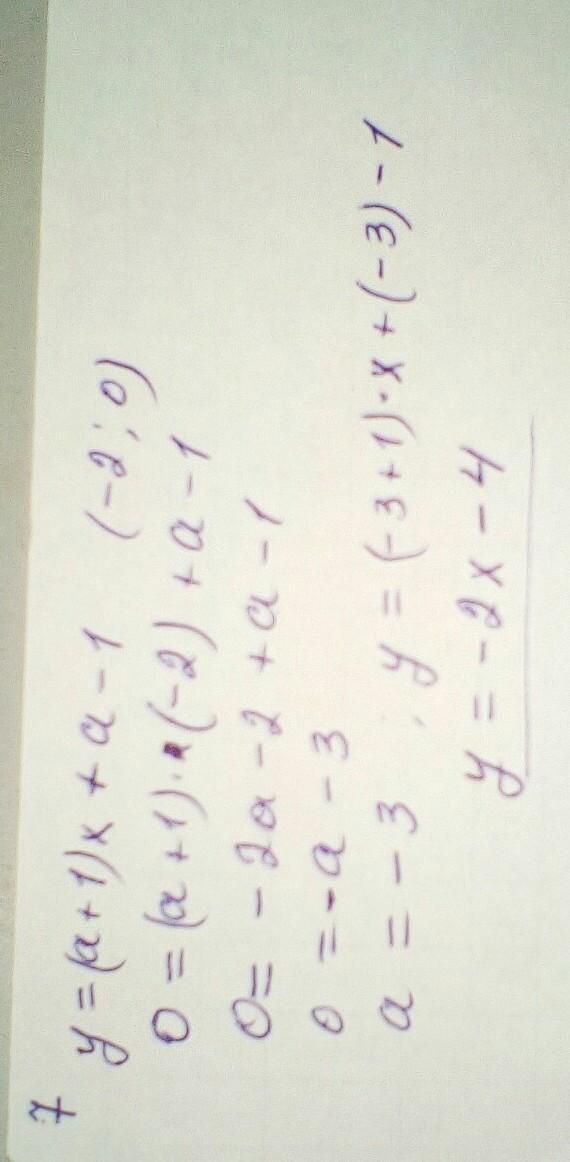 7
y = (a+1)x + a - 1 (-2; 0)
0 = (a+1)·(-2) + a - 1
0 = -2a - 2 + a - 1
0 = -a - 3
a = -3 ; y = (-3+1)·x + (-3) - 1
y = -2x - 4